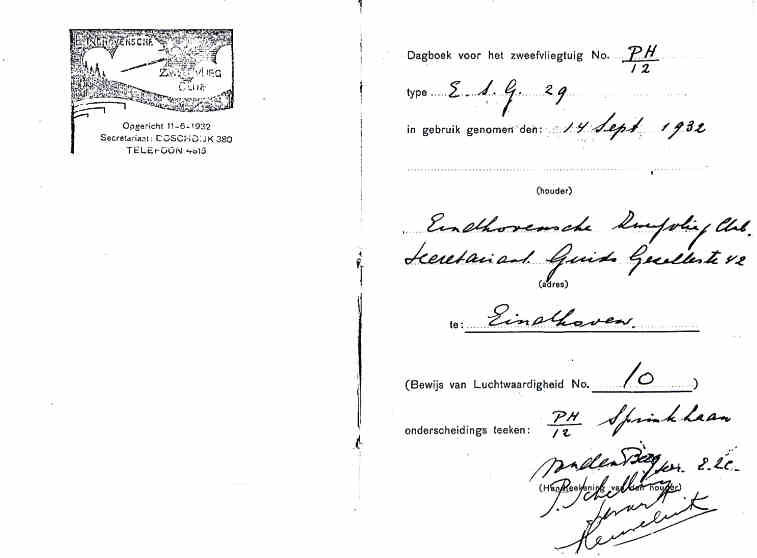 EINDHOVENSCHE
ZWEEFVLIEG
CLUB
Opgericht 11-6-1932
Secretariaat: BOSCHDIJK 380
TELEFOON 4615
Dagboek voor het zweefvliegtuig No. PH/12
type E.S.G. 29
in gebruik genomen den: 14 Sept 1932
(houder)
Eindhovensche Zweefvlieg Club.
Secretariaat Guido Gezellestr 42
(adres)
te: Eindhoven.
(Bewijs van Luchtwaardigheid No. 10)
onderscheidings teeken: PH/12 Sprinkhaan
van den Berg
(Handteekening van den houder)